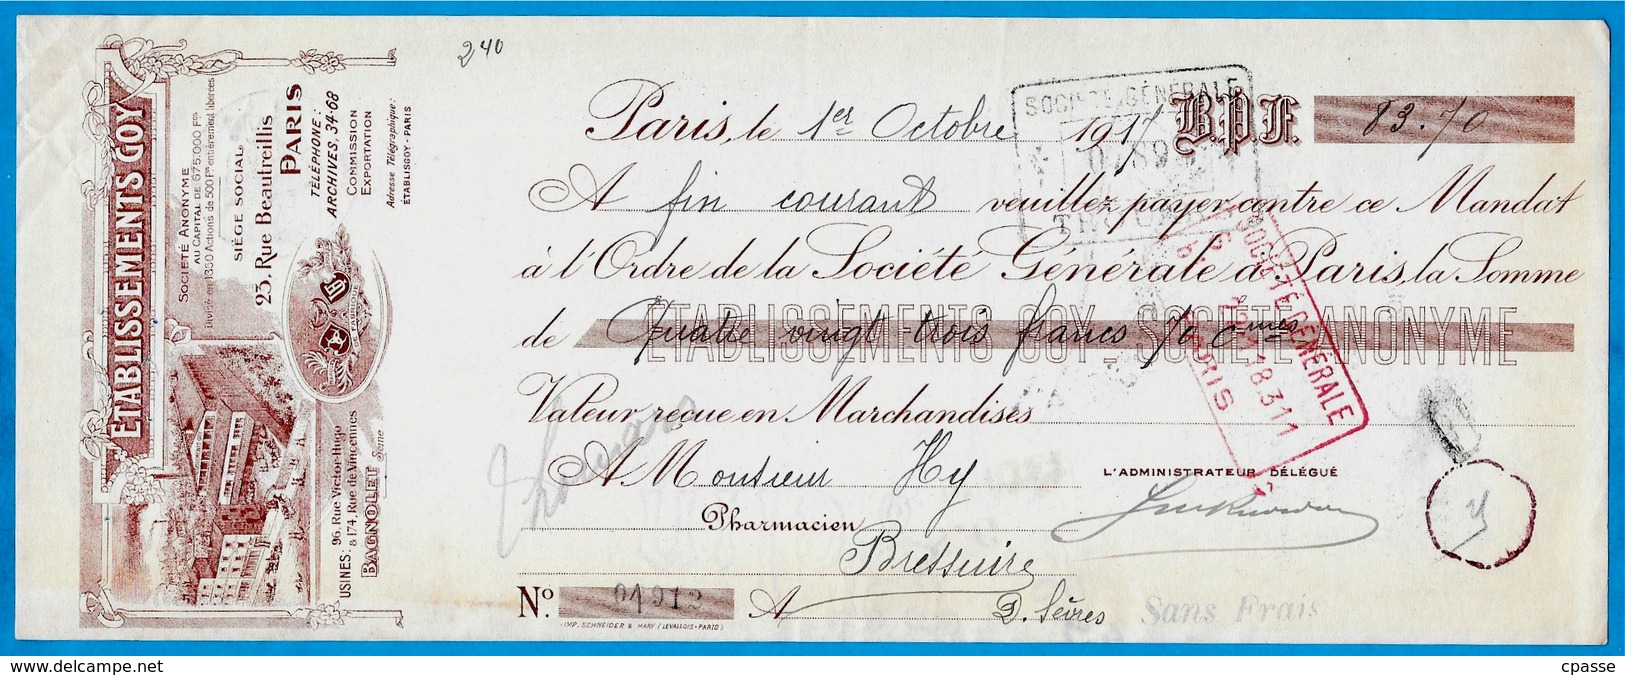 240
ETABLISSEMENTS GOY
SOCIÉTÉ ANONYME
AU CAPITAL DE 675.000 Frs
Divisé en 1350 Actions de 500 Frs entièrement libérées
SIÈGE SOCIAL
23, Rue Beautreillis
PARIS
TÉLÉPHONE:
ARCHIVES, 34-68
COMMISSION
EXPORTATION
Adresse Télégraphique:
ÉTABLISGOY-PARIS
USINES: 96, Rue Victor-Hugo
& 174, Rue de Vincennes
BAGNOLET Seine
Paris, le 1er Octobre 1917 B.P.F. 83.70
A fin courant veuillez payer contre ce Mandat
à l'Ordre de la Société Générale à Paris, la Somme
de Quatre vingt trois francs 70 cmes
ÉTABLISSEMENTS GOY _ SOCIÉTÉ ANONYME
Valeur reçue en Marchandises
A Monsieur Hy
Pharmacien
Bressuire
A D. Sèvres
No. 01912
IMP. SCHNEIDER & MARY (LEVALLOIS-PARIS)
L'ADMINISTRATEUR DÉLÉGUÉ
SOCIÉTÉ GÉNÉRALE
SOCIÉTÉ GÉNÉRALE
PARIS
Sans Frais
cpasse